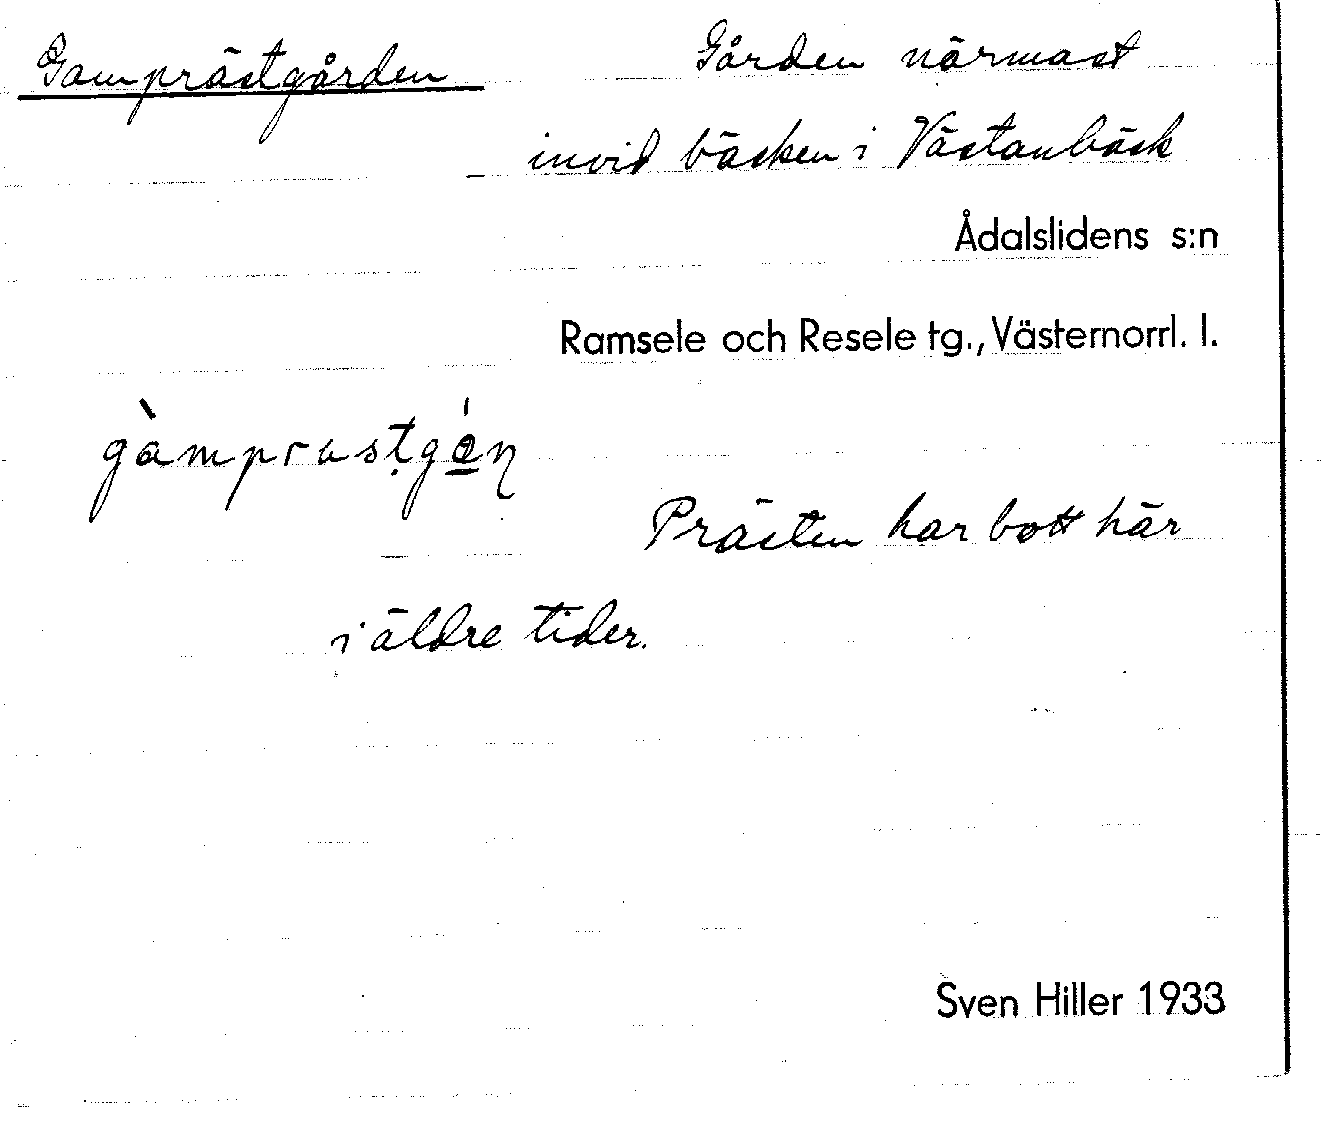 Gamprästgården Gården närmast
invid bäcken i Västanbäck
Ådalslidens s:n
Ramsele och Resele tg., Västernorrl. l.
Prästen har bott här
i äldre tider.
Sven Hiller 1933